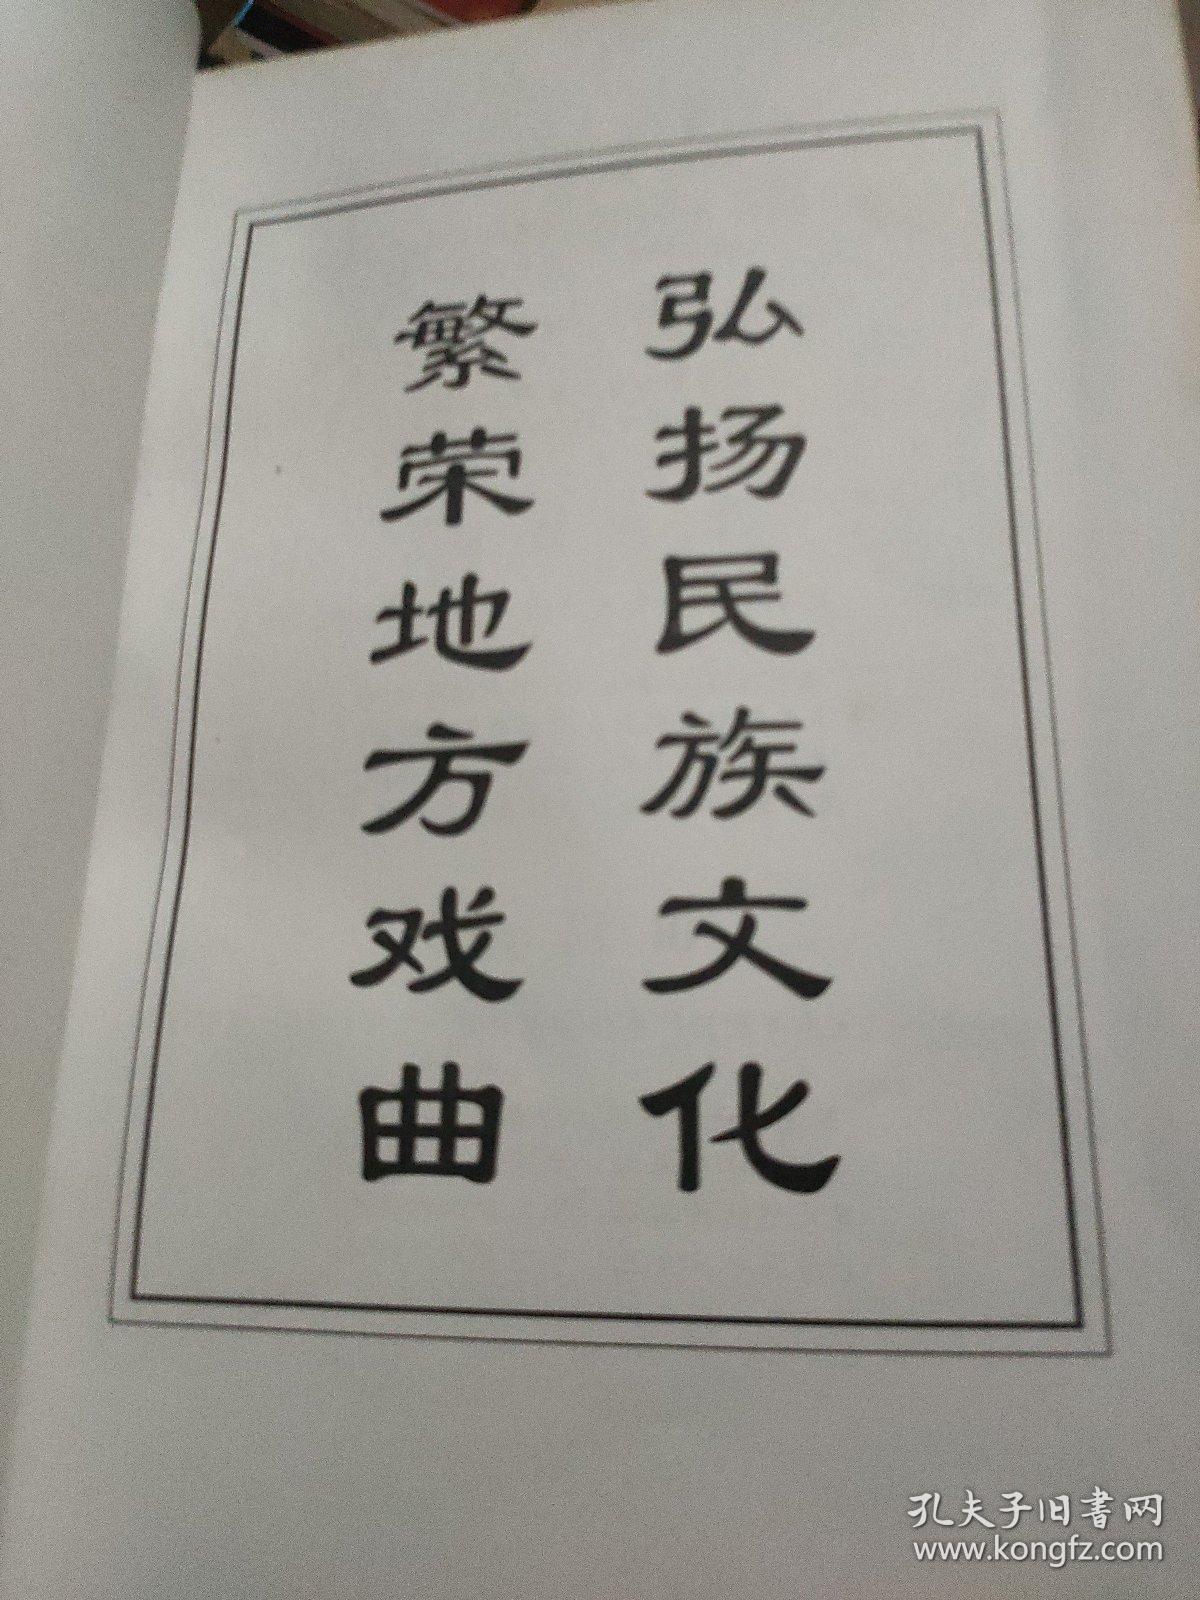 弘扬民族文化
繁荣地方戏曲
孔夫子旧書网
www.kongfz.com